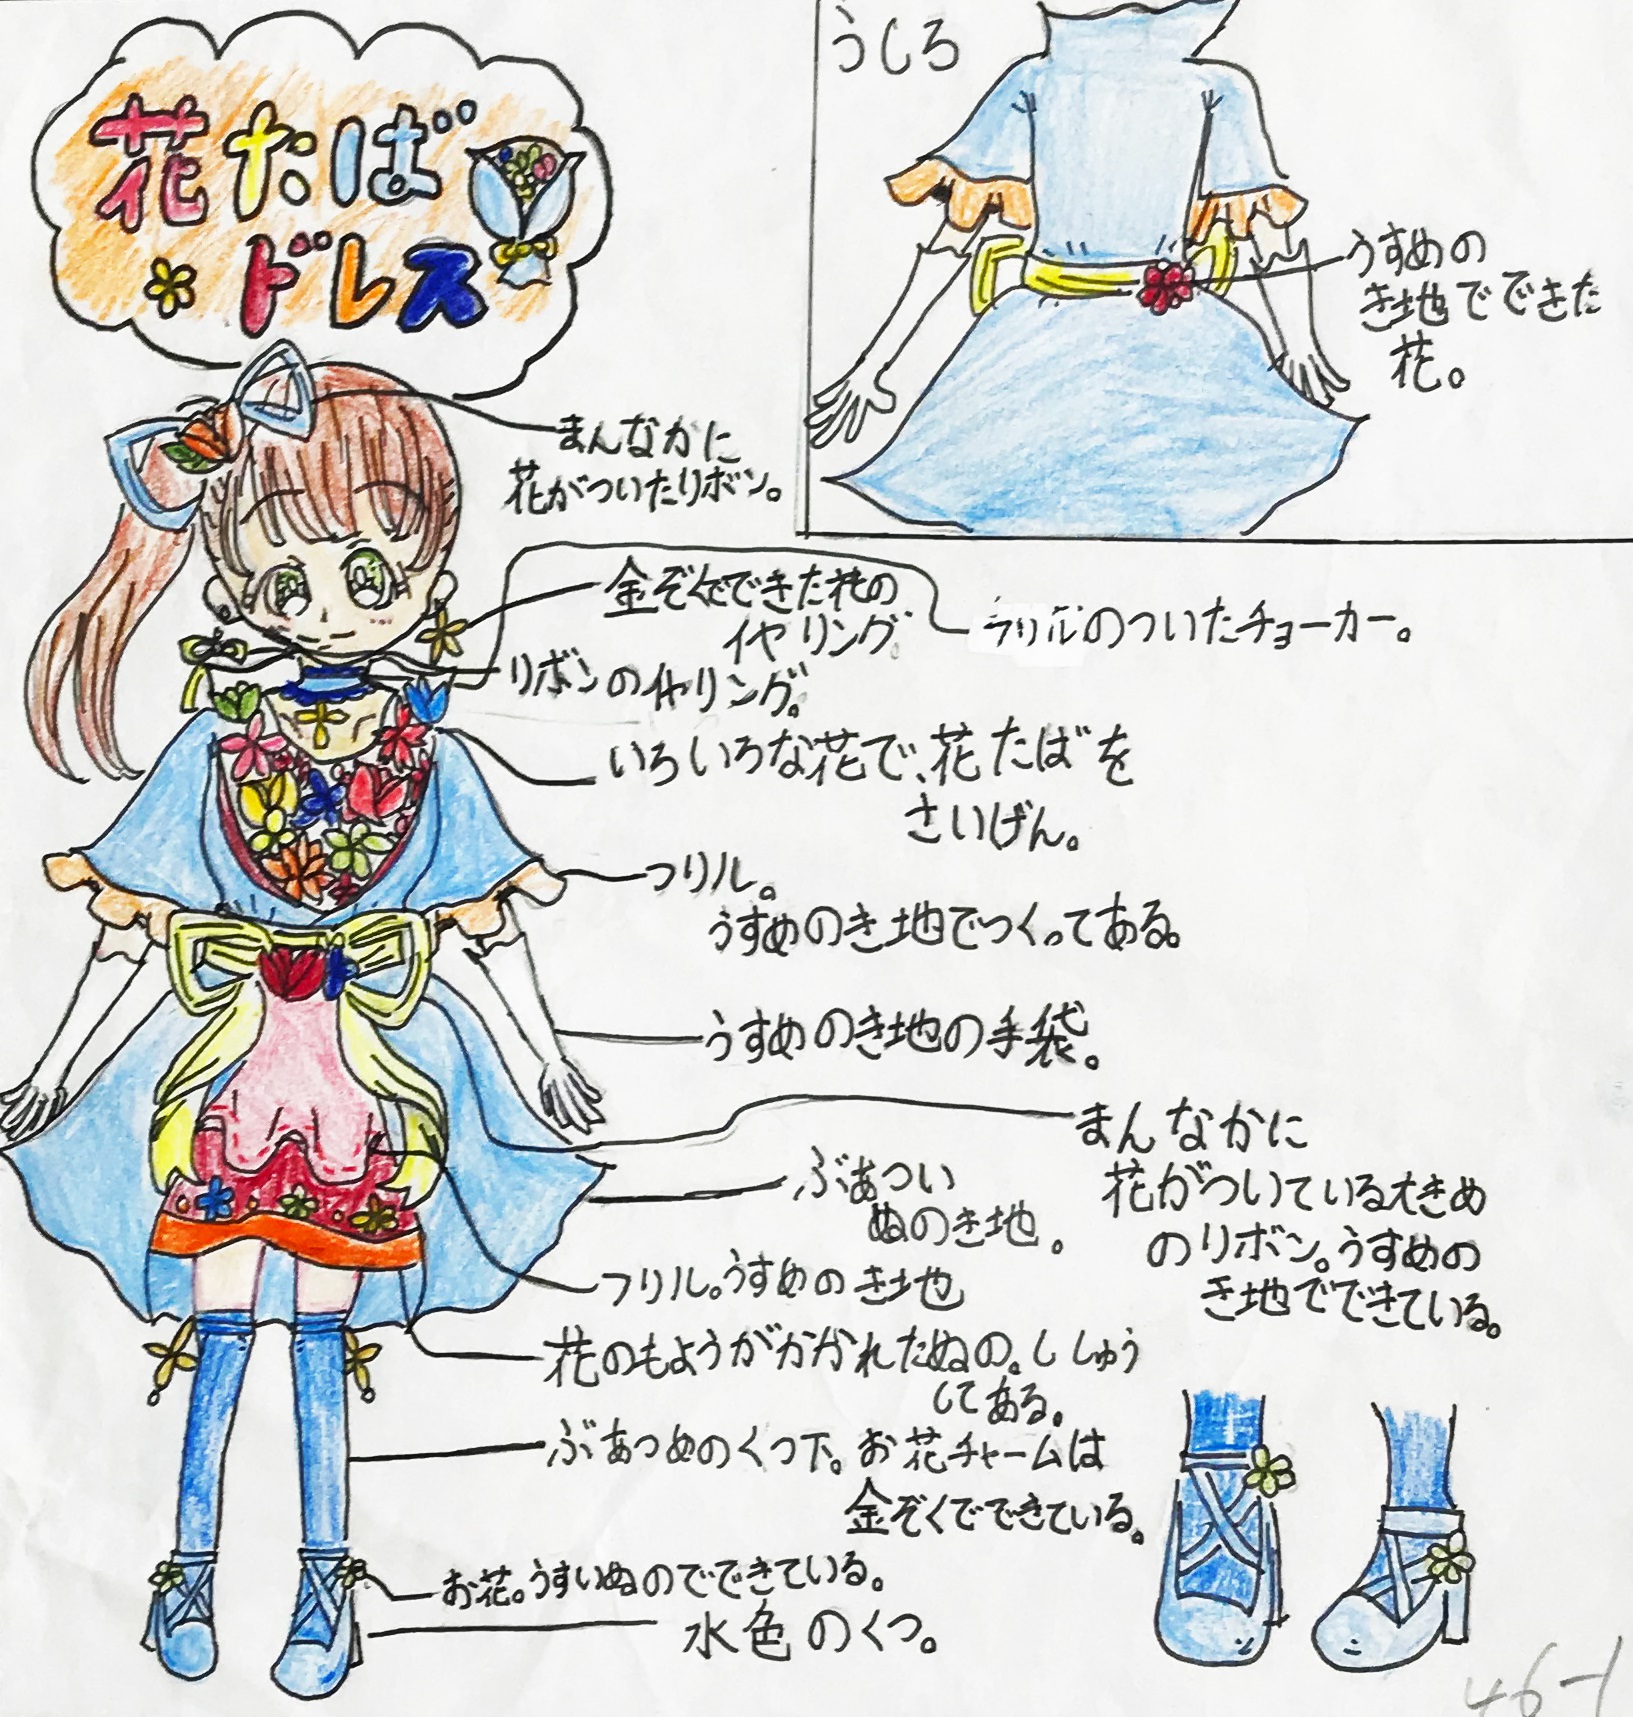 花たば
ドレス
うしろ
うすめの
き地でできた
花。
まんなかに
花がついたリボン。
金ぞくでできた花の
イヤリング。
フリルのついたチョーカー。
リボンのイヤリング。
いろいろな花で、花たばを
さいげん。
フリル。
うすめのき地でつくってある。
うすめのき地の手袋。
まんなかに
花がついている大きめ
のリボン。うすめの
き地でできている。
ぶあつい
ぬのき地。
フリル。うすめのき地
花のもようがかかれたぬの。ししゅう
してある。
ぶあつめのくつ下。お花チャームは
金ぞくでできている。
お花。うすいぬのでできている。
水色のくつ。
46-1